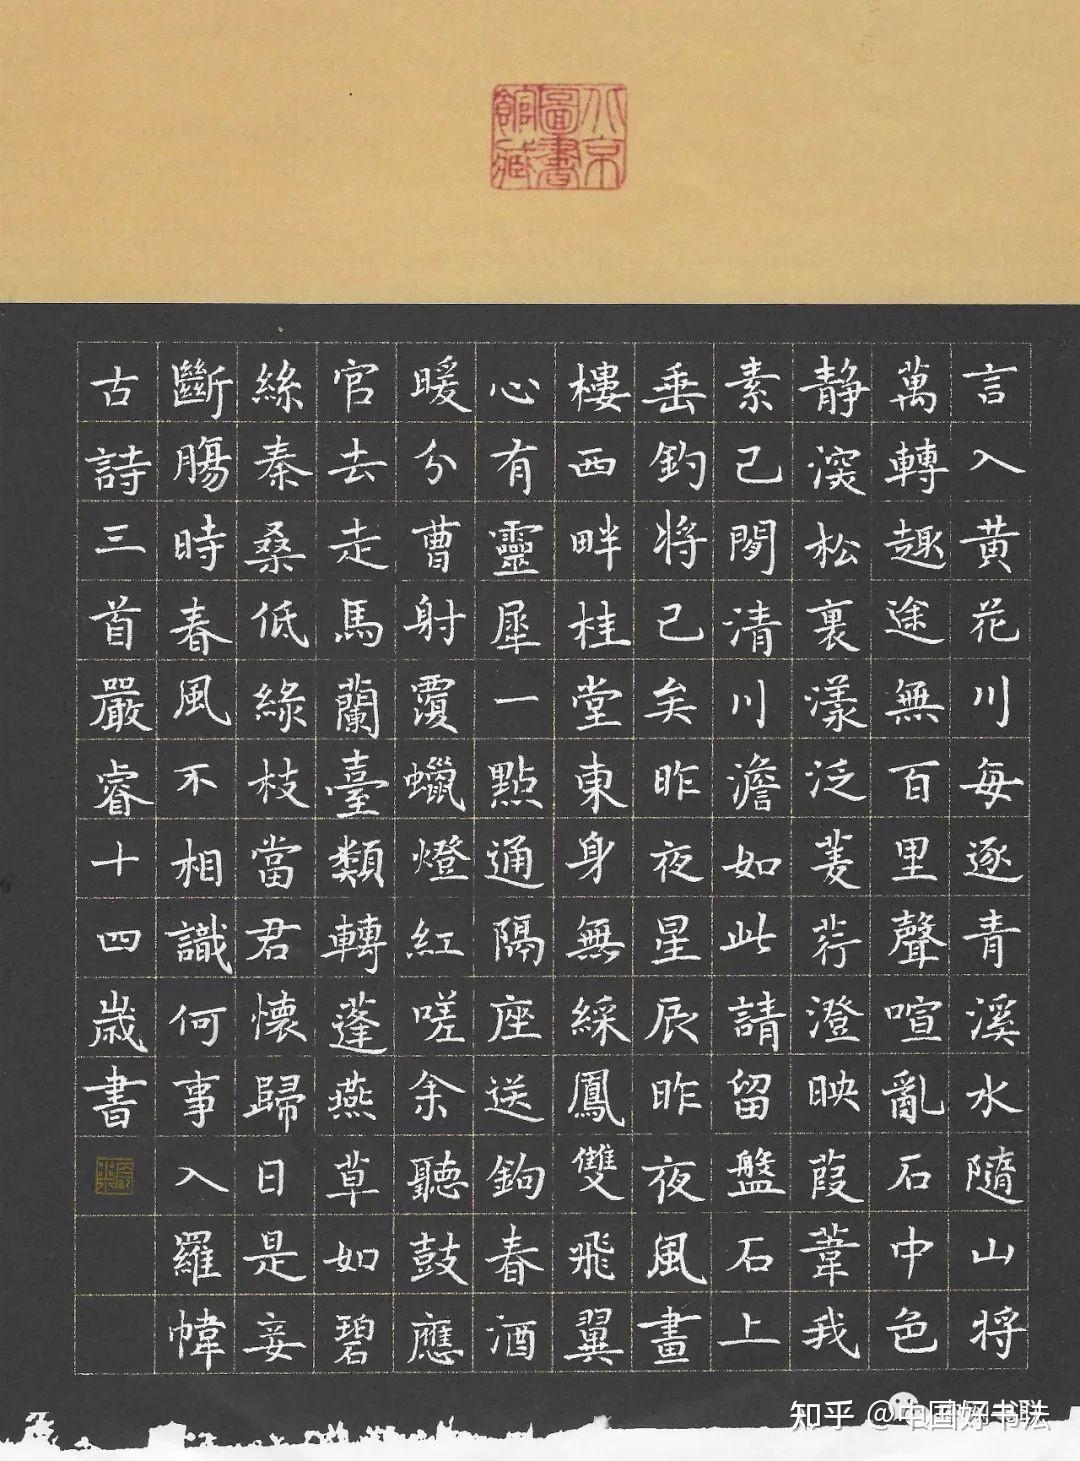 北京
圖書
館藏
言入黄花川每逐青溪水隨山将
萬轉趣途無百里聲喧亂石中色
静深松裏漾泛菱荇澄映葭葦我
素已閒清川澹如此請留盤石上
垂釣将已矣昨夜星辰昨夜風畫
樓西畔桂堂東身無綵鳳雙飛翼
心有靈犀一點通隔座送鉤春酒
暖分曹射覆蠟燈紅嗟余聽鼓應
官去走馬蘭臺類轉蓬燕草如碧
絲秦桑低緑枝當君懷歸日是妾
斷腸時春風不相識何事入羅幃
古詩三首嚴睿十四歲書
知乎 @中国好书法